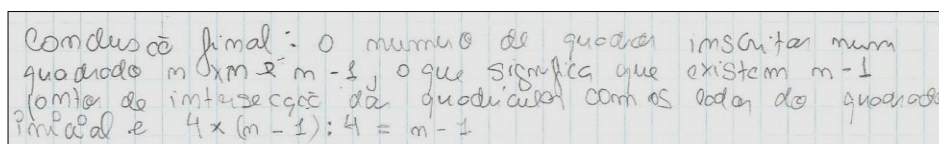 Conclusão final: o numero de quadrados inscritos num
quadrado n x n é n - 1, o que significa que existem n - 1
pontos de intersecção da quadricula com os lados do quadrado
inicial e 4 x (n - 1) : 4 = n - 1